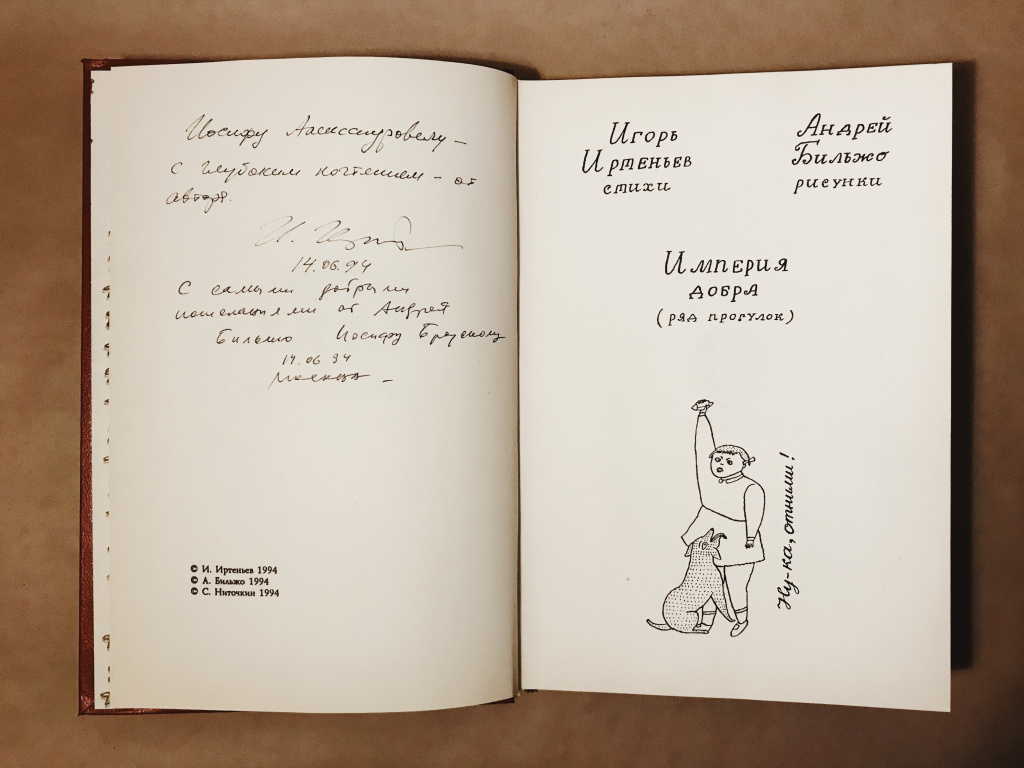 Иосифу Александровичу –
с глубоким почтением – от
автора.
И. Ирт
14.06.94
С самыми добрыми
пожеланиями от Андрея
Бильжо Иосифу Бродскому
14.06 94
Москва –
© И. Иртеньев 1994
© А. Бильжо 1994
© С. Ниточкин 1994
Игорь
Иртеньев
стихи
Андрей
Бильжо
рисунки
Империя
добра
(ряд прогулок)
Ну-ка, отними!